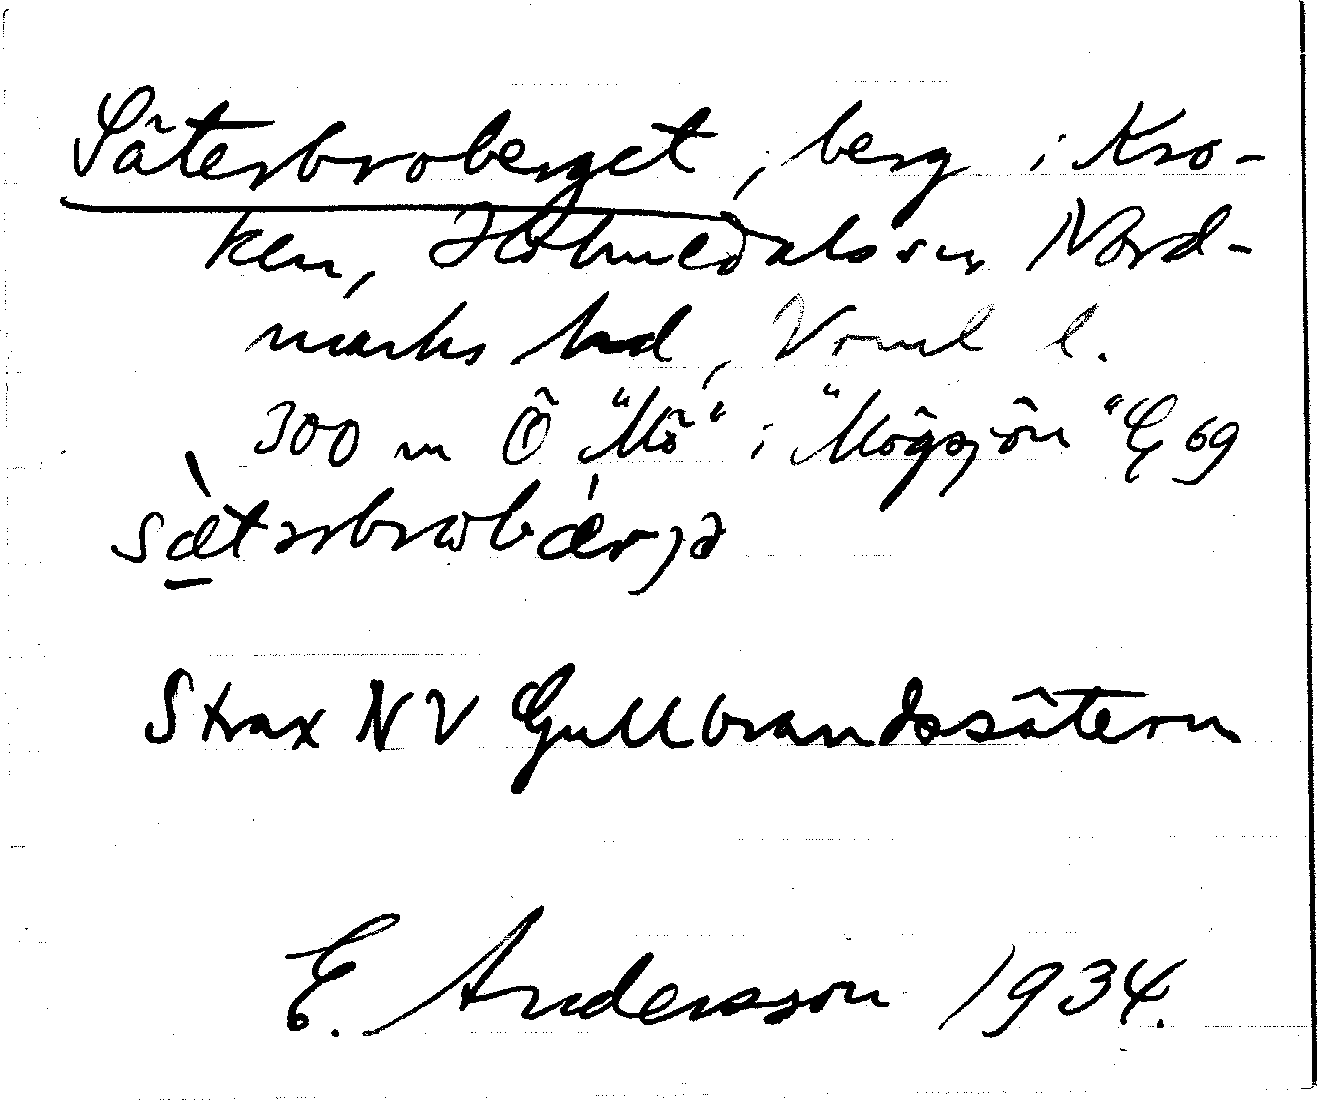 Säterbroberget, berg i Kro-
ken, Holmedals sn, Nord-
marks hd, Vrml l.
300 m Ö "Mö" i "Mögsjön" E 69
sæ̀tərbrωbǽrjə
Strax NV Gullbrandssätern
E. Andersson 1934.